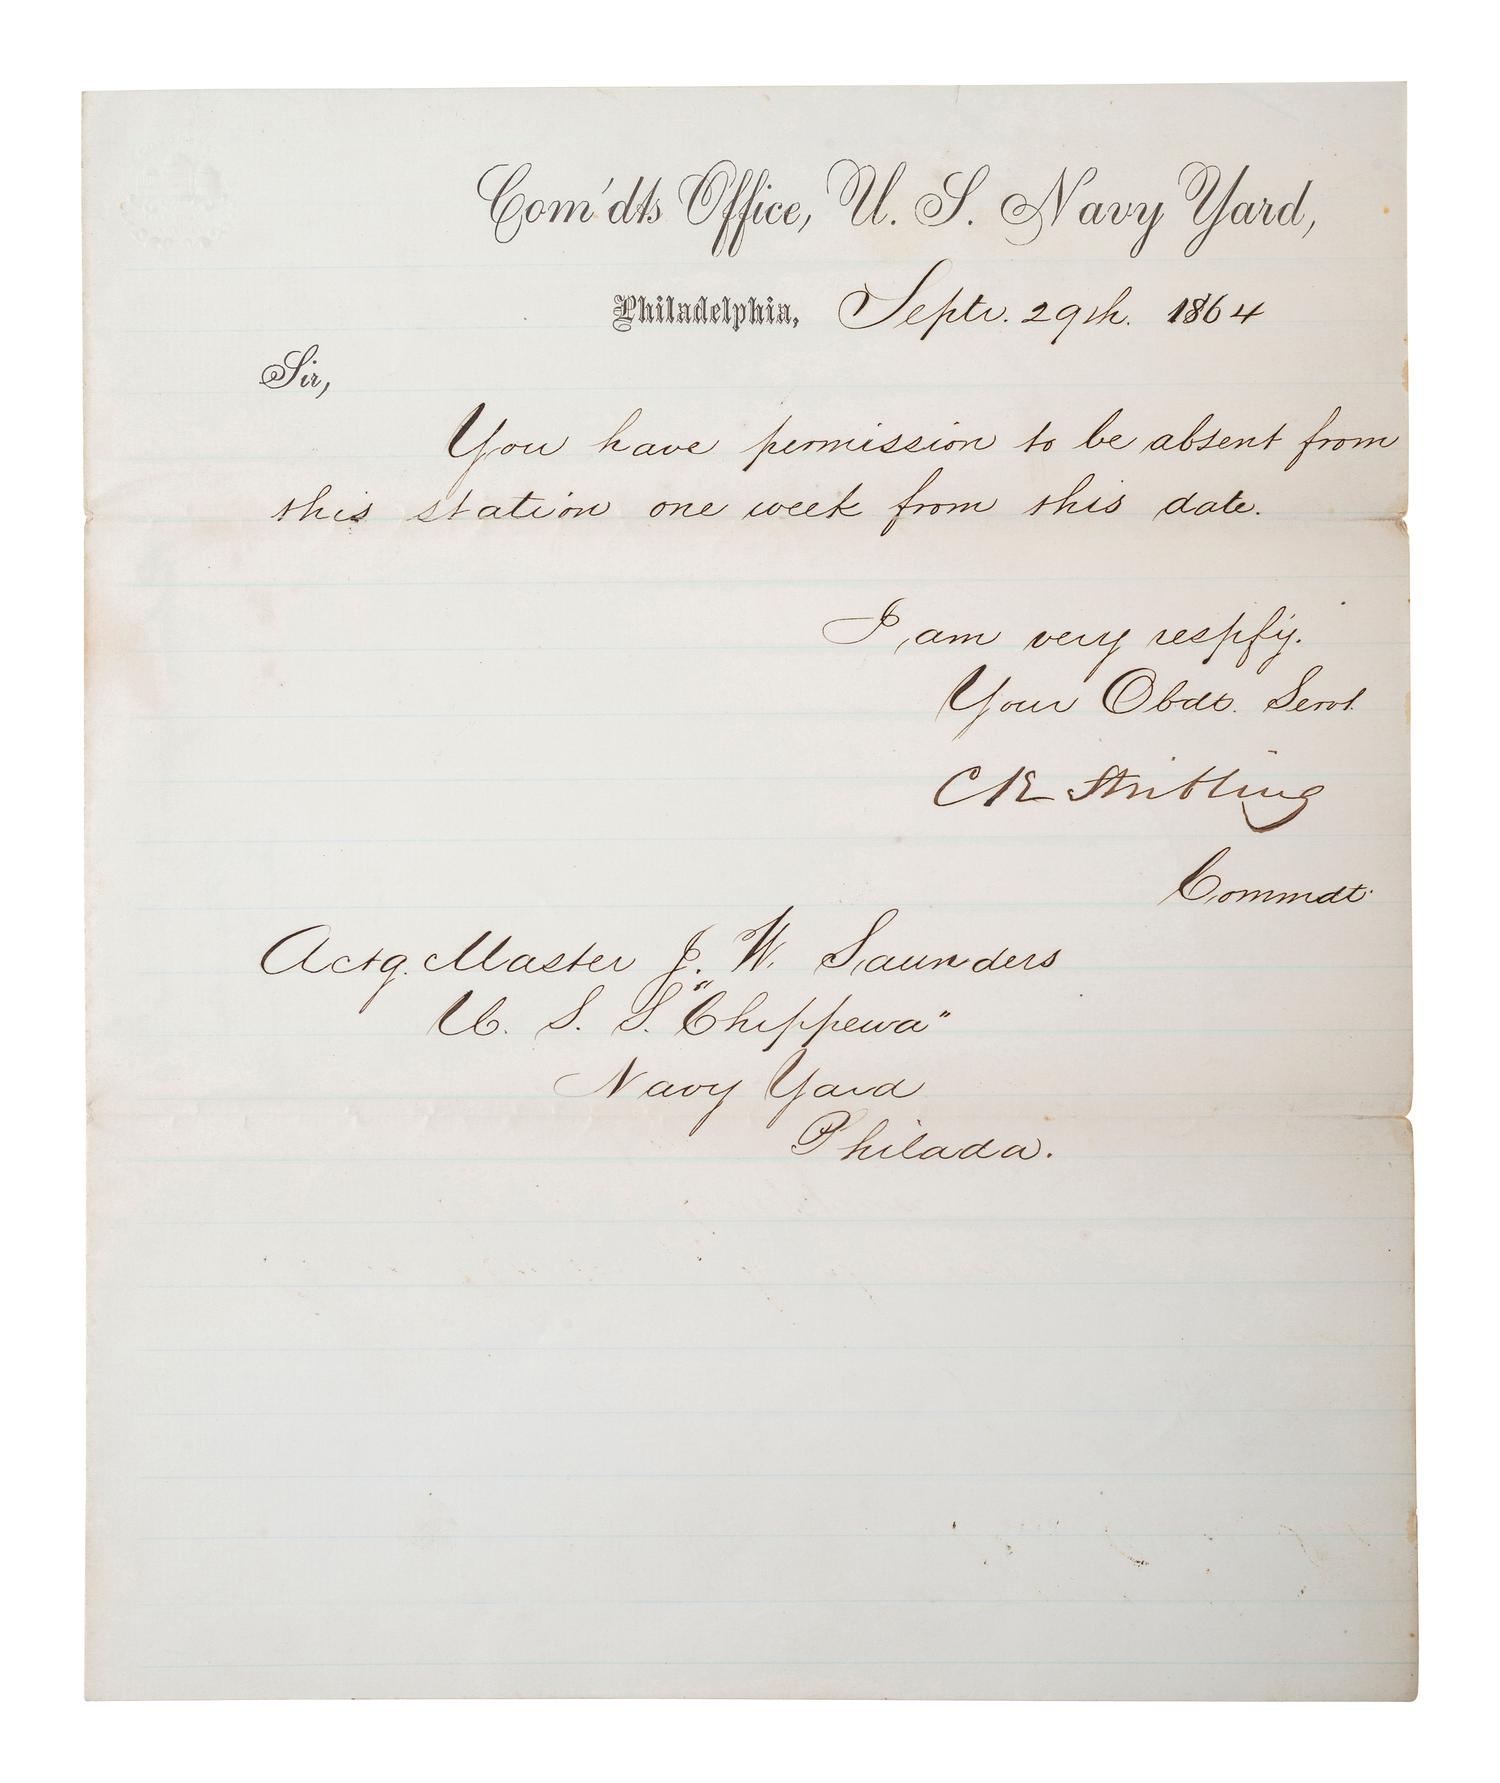 Com'dts Office, U. S. Navy Yard,
Philadelphia, Septr. 29th. 1864
Sir,
You have permission to be absent from
this station one week from this date.
I am very respfy.
Your Obdt. Servt
C K Stribling
Commdt.
Actg. Master J. W. Saunders
U. S. S. "Chippewa"
Navy Yard
Philada.